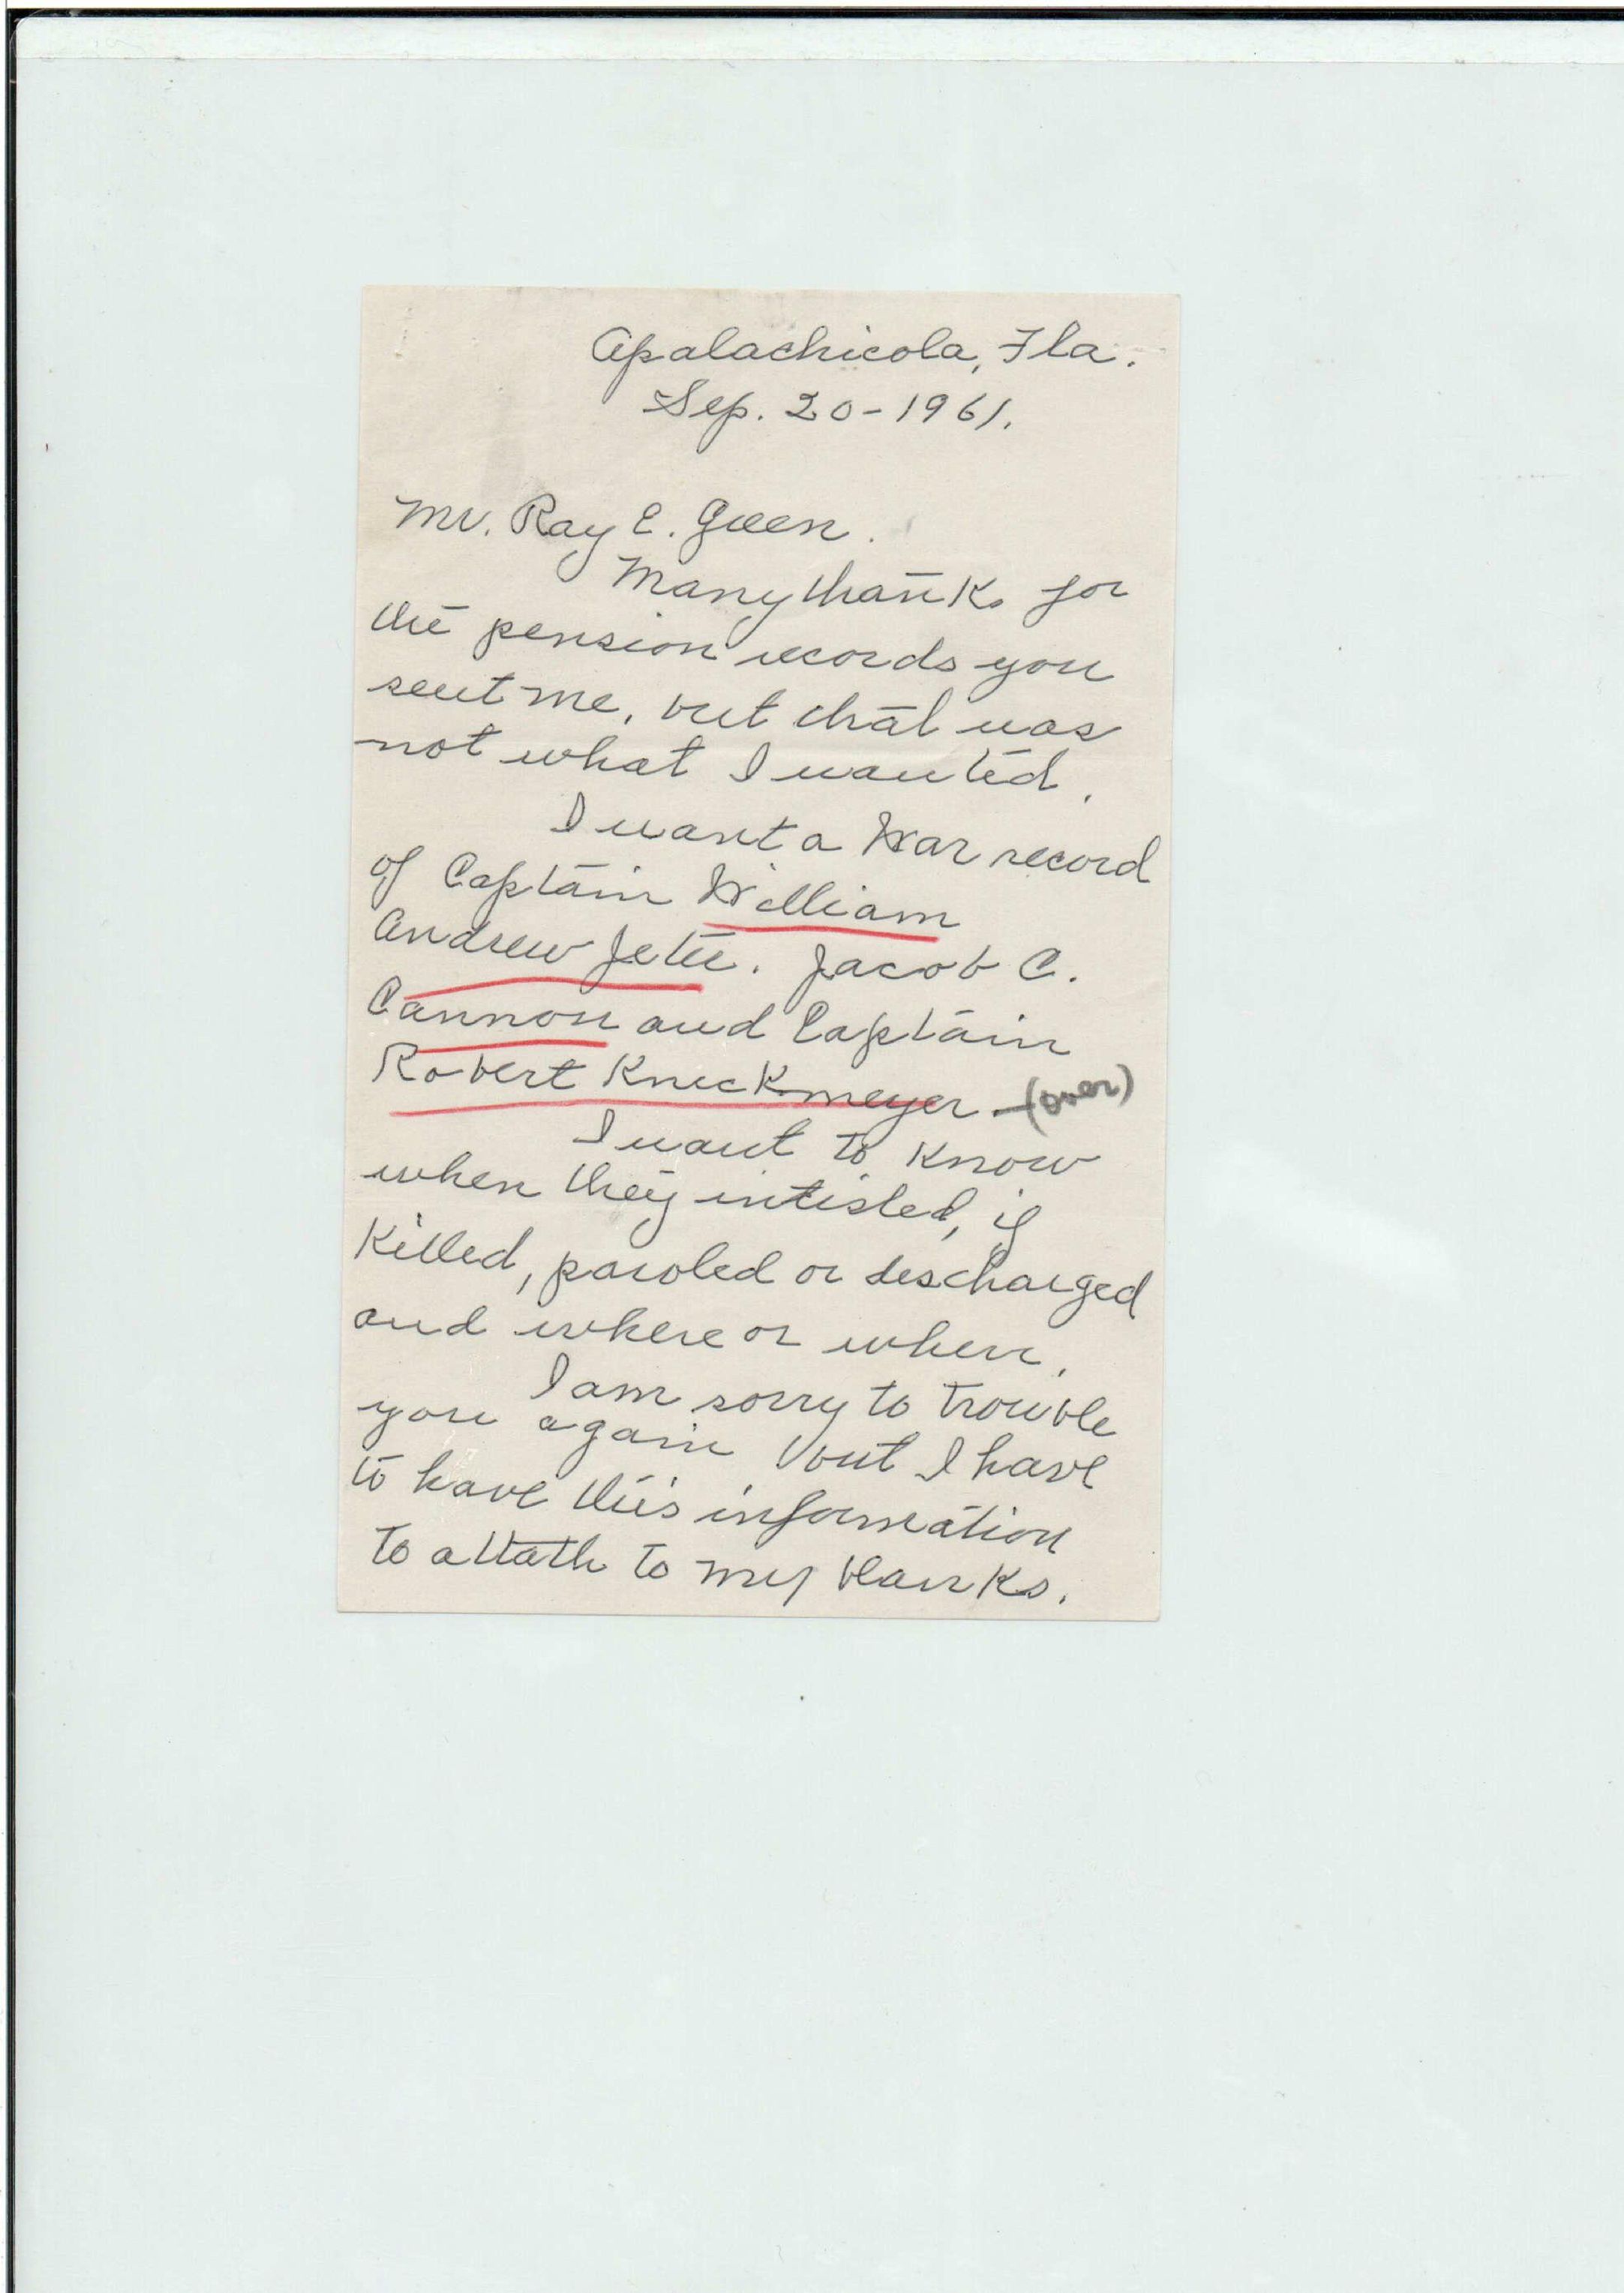 Apalachicola, Fla.
Sep. 20-1961.
Mr. Ray E. Green.
Many thanks for
the pension records you
sent me, but that was
not what I wanted.
I want a War record
of Captain William
Andrew Jeter. Jacob C.
Cannon and Captain
Robert Knickmeyer - (over)
I want to know
when they intisled, if
Killed, paroled or descharged
and where or when.
I am sorry to trouble
you again but I have
to have this information
to attath to my blanks.